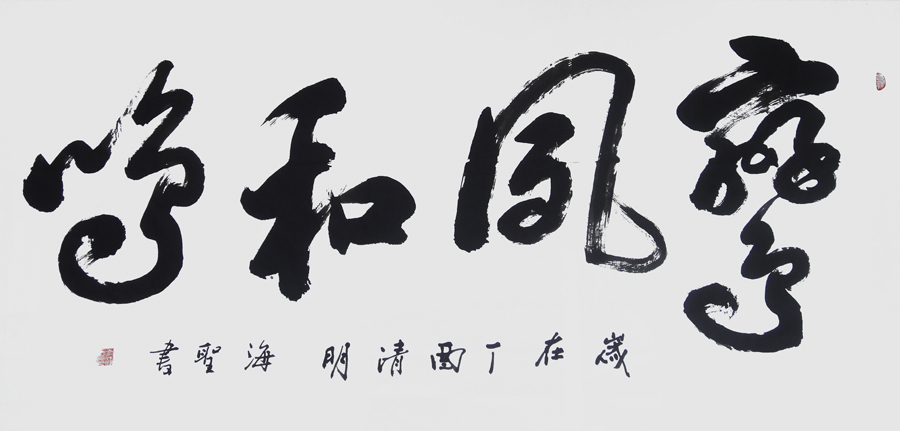 鸞鳳和鳴
歲在丁酉清明 海聖書